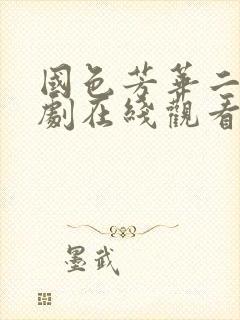 國色芳華二
劇在綫觀看
墨武